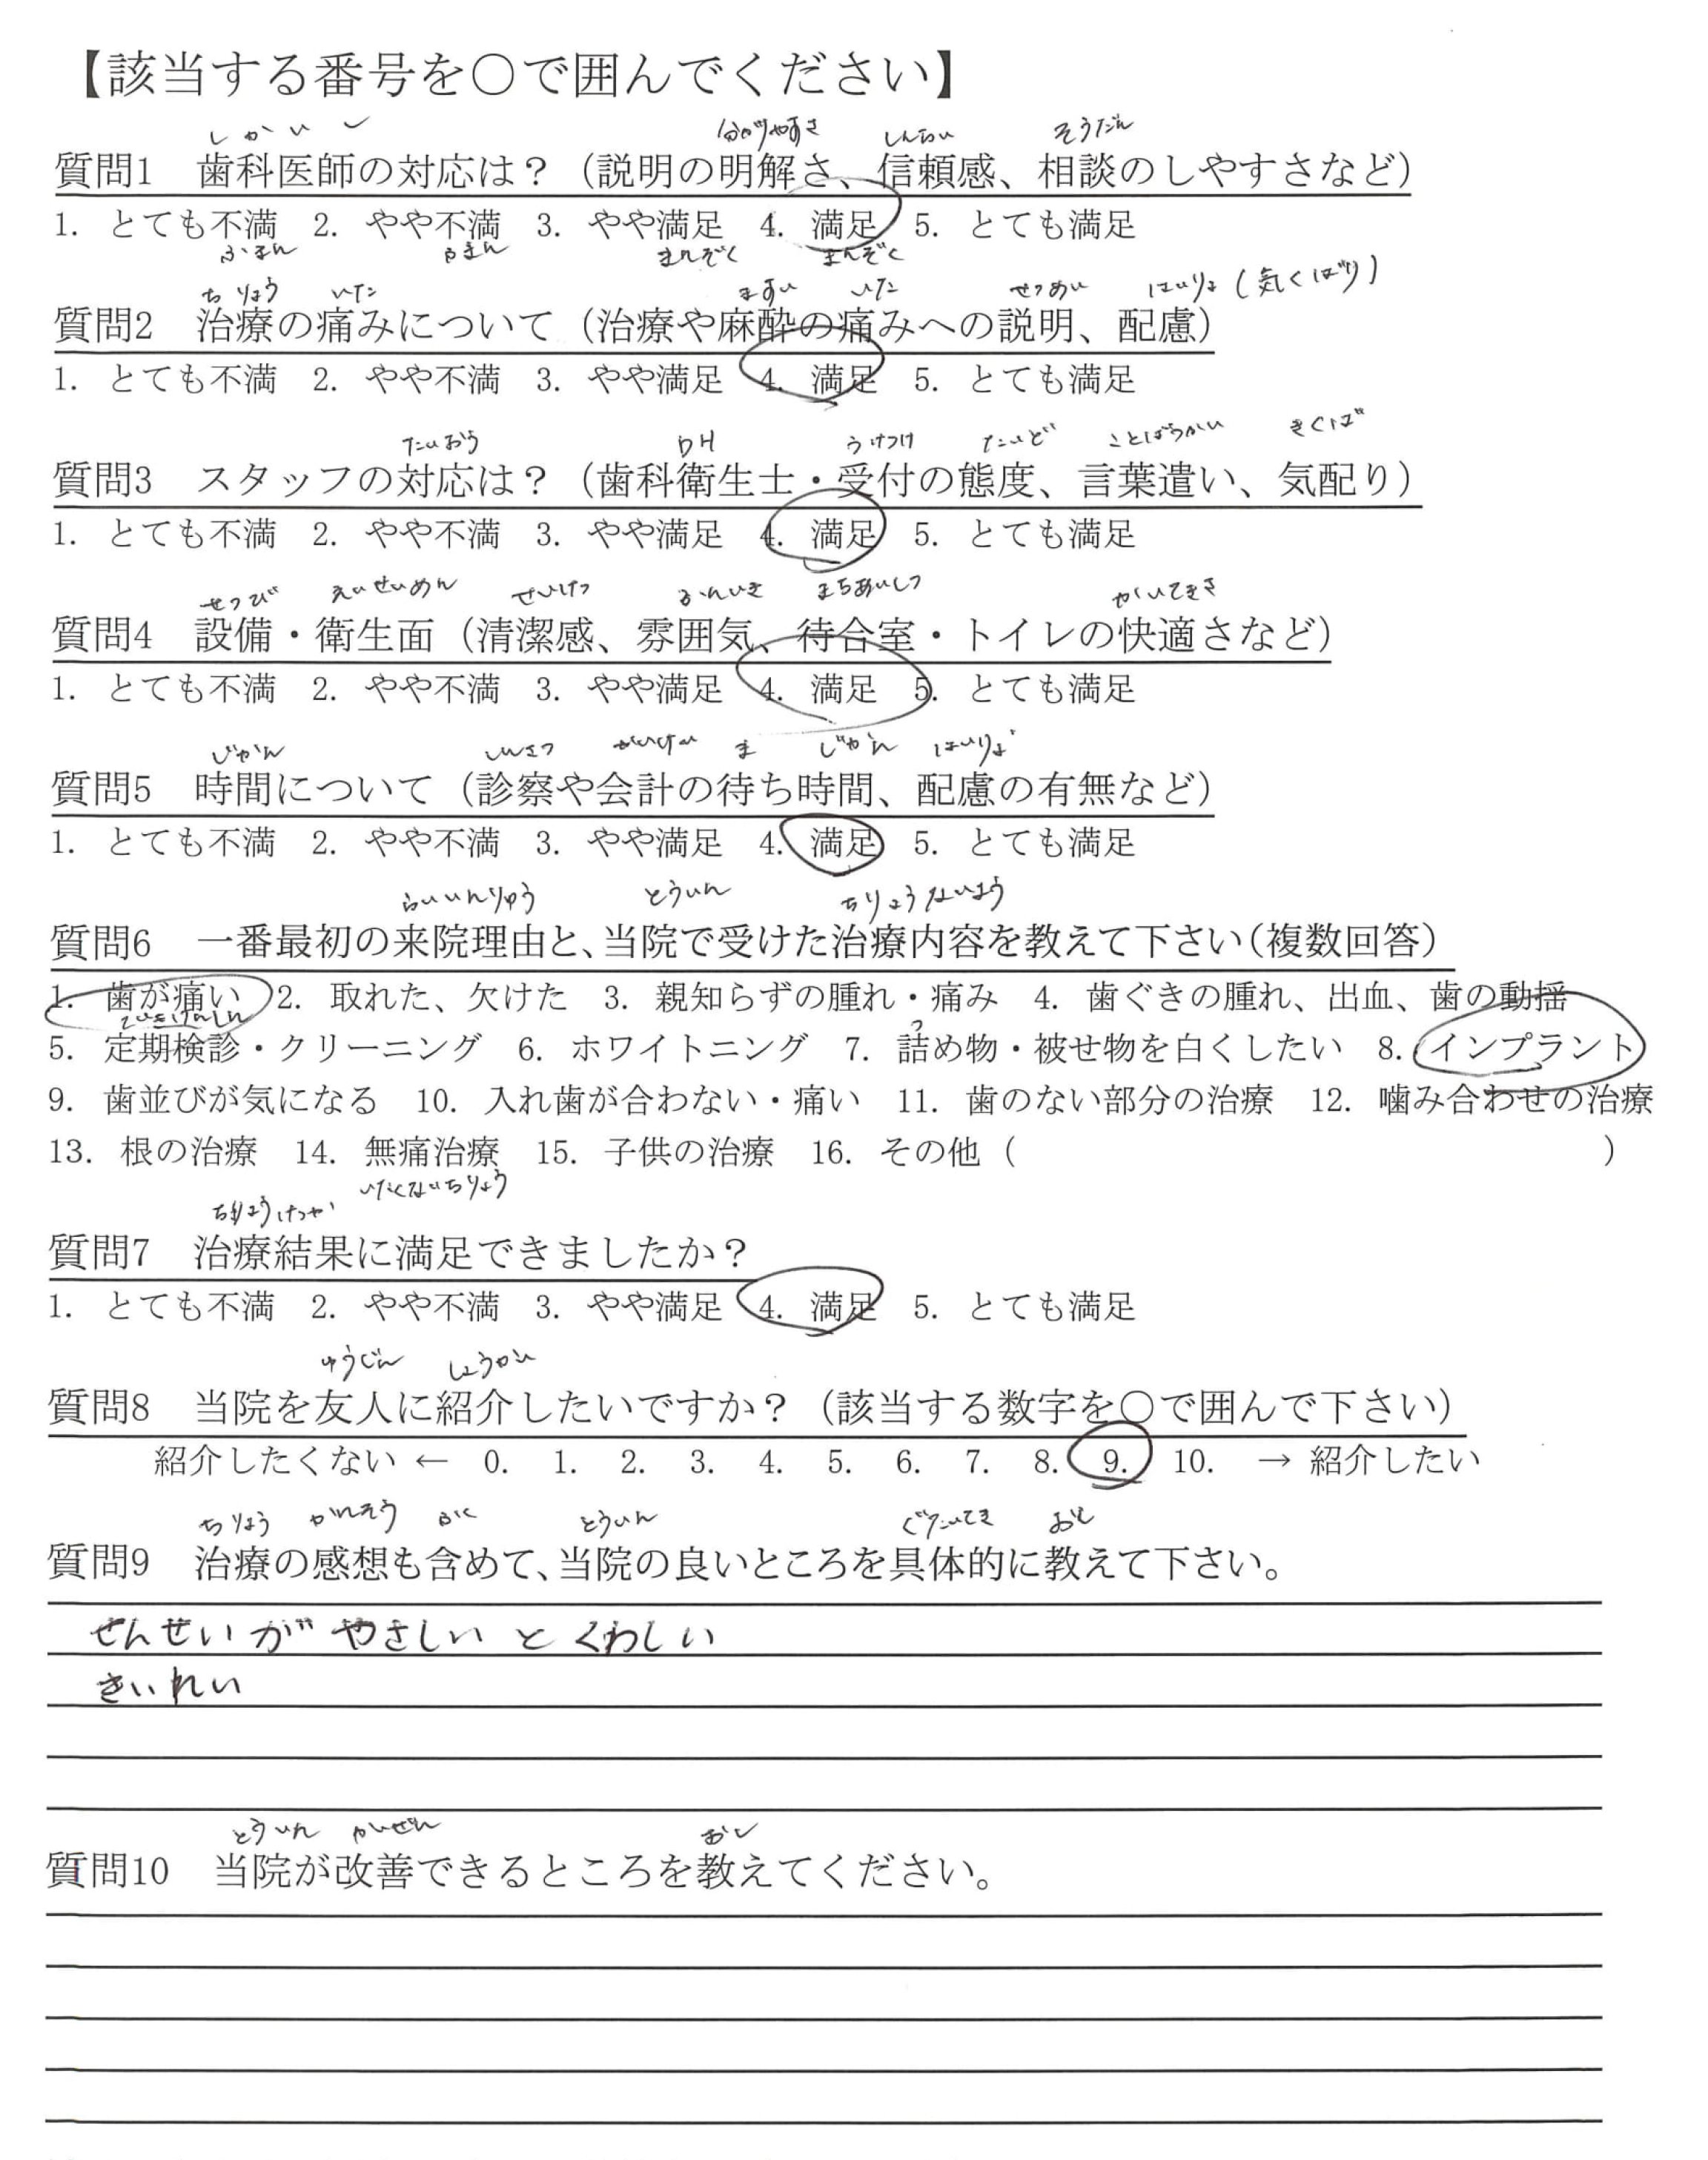 【該当する番号を○で囲んでください】
しかいし 分かりやすさ しんらい そうだん
質問1 歯科医師の対応は？（説明の明解さ、信頼感、相談のしやすさなど）
1. とても不満 2. やや不満 3. やや満足 4. 満足 5. とても満足
ふまん ふまん まんぞく まんぞく
ちりょう いた ますい いた せつめい はいりょ(気くばり)
質問2 治療の痛みについて（治療や麻酔の痛みへの説明、配慮）
1. とても不満 2. やや不満 3. やや満足 4. 満足 5. とても満足
たいおう DH うけつけ たいど ことばづかい きくば
質問3 スタッフの対応は？（歯科衛生士・受付の態度、言葉遣い、気配り）
1. とても不満 2. やや不満 3. やや満足 4. 満足 5. とても満足
せつび えいせいめん せいけつ ふんいき まちあいしつ かいてきさ
質問4 設備・衛生面（清潔感、雰囲気、待合室・トイレの快適さなど）
1. とても不満 2. やや不満 3. やや満足 4. 満足 5. とても満足
じかん しんさつ かいけい ま じかん はいりょ
質問5 時間について（診察や会計の待ち時間、配慮の有無など）
1. とても不満 2. やや不満 3. やや満足 4. 満足 5. とても満足
らいいんりゆう とういん ちりょうないよう
質問6 一番最初の来院理由と、当院で受けた治療内容を教えて下さい（複数回答）
1. 歯が痛い 2. 取れた、欠けた 3. 親知らずの腫れ・痛み 4. 歯ぐきの腫れ、出血、歯の動揺
ていきけんしん つ
5. 定期検診・クリーニング 6. ホワイトニング 7. 詰め物・被せ物を白くしたい 8. インプラント
9. 歯並びが気になる 10. 入れ歯が合わない・痛い 11. 歯のない部分の治療 12. 噛み合わせの治療
13. 根の治療 14. 無痛治療 15. 子供の治療 16. その他（ ）
いたくないちりょう
ちりょうけっか
質問7 治療結果に満足できましたか？
1. とても不満 2. やや不満 3. やや満足 4. 満足 5. とても満足
ゆうじん しょうかい
質問8 当院を友人に紹介したいですか？（該当する数字を○で囲んで下さい）
紹介したくない ← 0. 1. 2. 3. 4. 5. 6. 7. 8. 9. 10. → 紹介したい
ちりょう かんそう ふく とういん ぐたいてき おし
質問9 治療の感想も含めて、当院の良いところを具体的に教えて下さい。
せんせいが やさしい と くわしい
きいれい
とういん かいぜん おし
質問10 当院が改善できるところを教えてください。